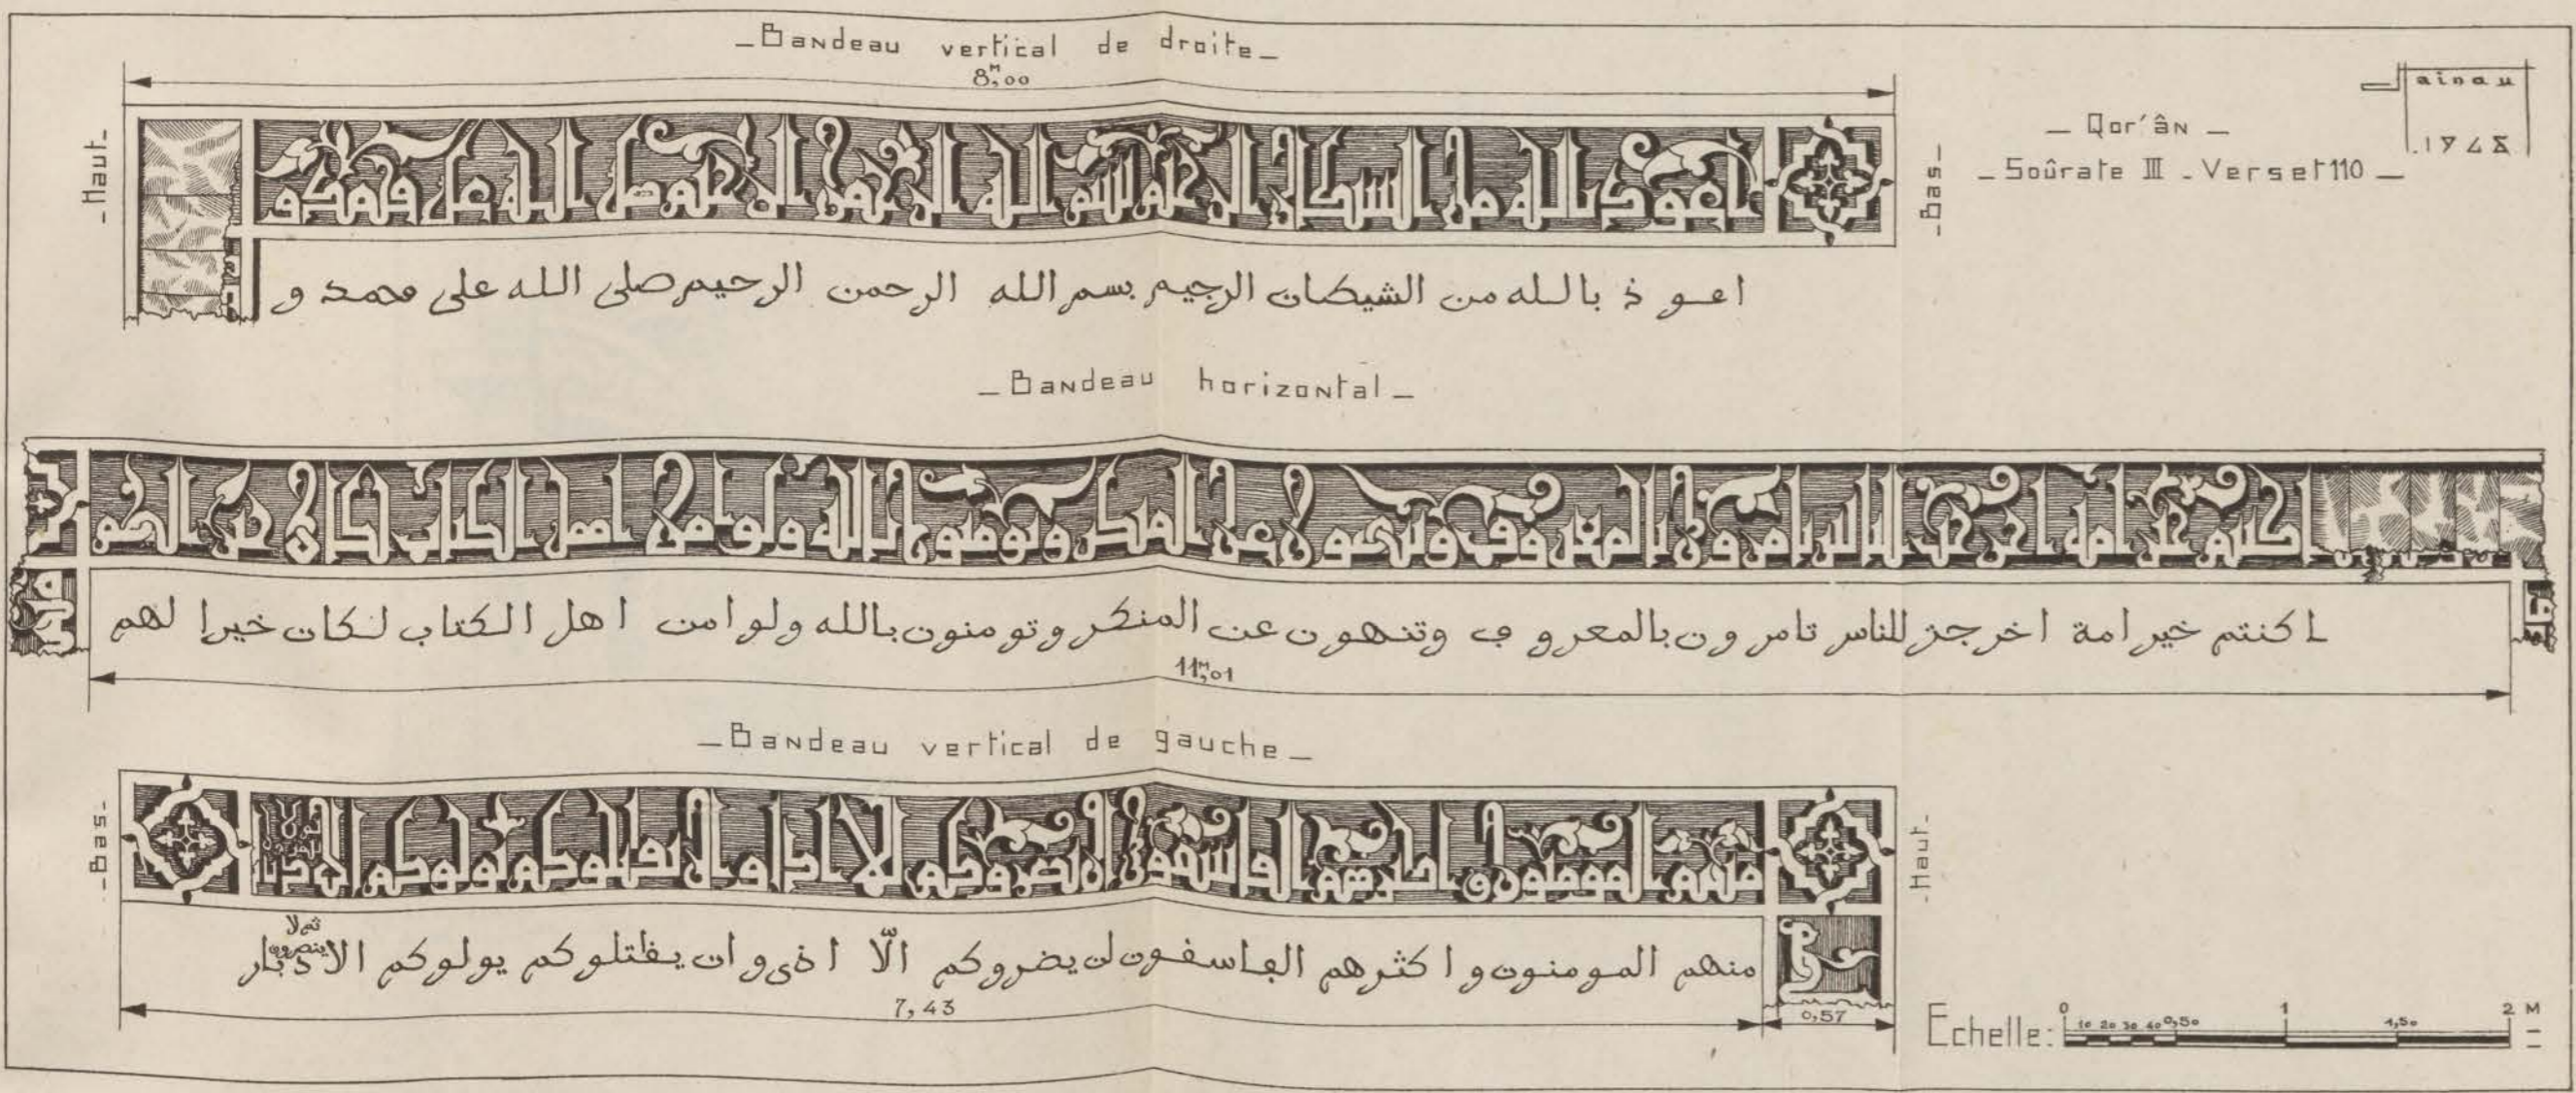 _Bandeau vertical de droite_
8,M00
_Haut_
_Bas_
_ Qor'ân _
_ Soûrate III _ Verset 110 _
ainau
1948
اعوذ بالله من الشيطان الرجيم بسم الله الرحمن الرحيم صلى الله على محمد و
_Bandeau horizontal_
ا كنتم خير امة اخرجت للناس تامرون بالمعروف وتنهون عن المنكر وتومنون بالله ولو امن اهل الكتاب لكان خيرا لهم
11,M01
_Bandeau vertical de gauche_
_Bas_
_Haut_
منهم المومنون و اكثرهم الفاسفون لن يضروكم الّا اذى و ان يفاتلوكم يولوكم الادبار
ثم لا ينصرون
7,43
0,57
Echelle: 0 10 20 30 40 0,50 1 1,50 2 M